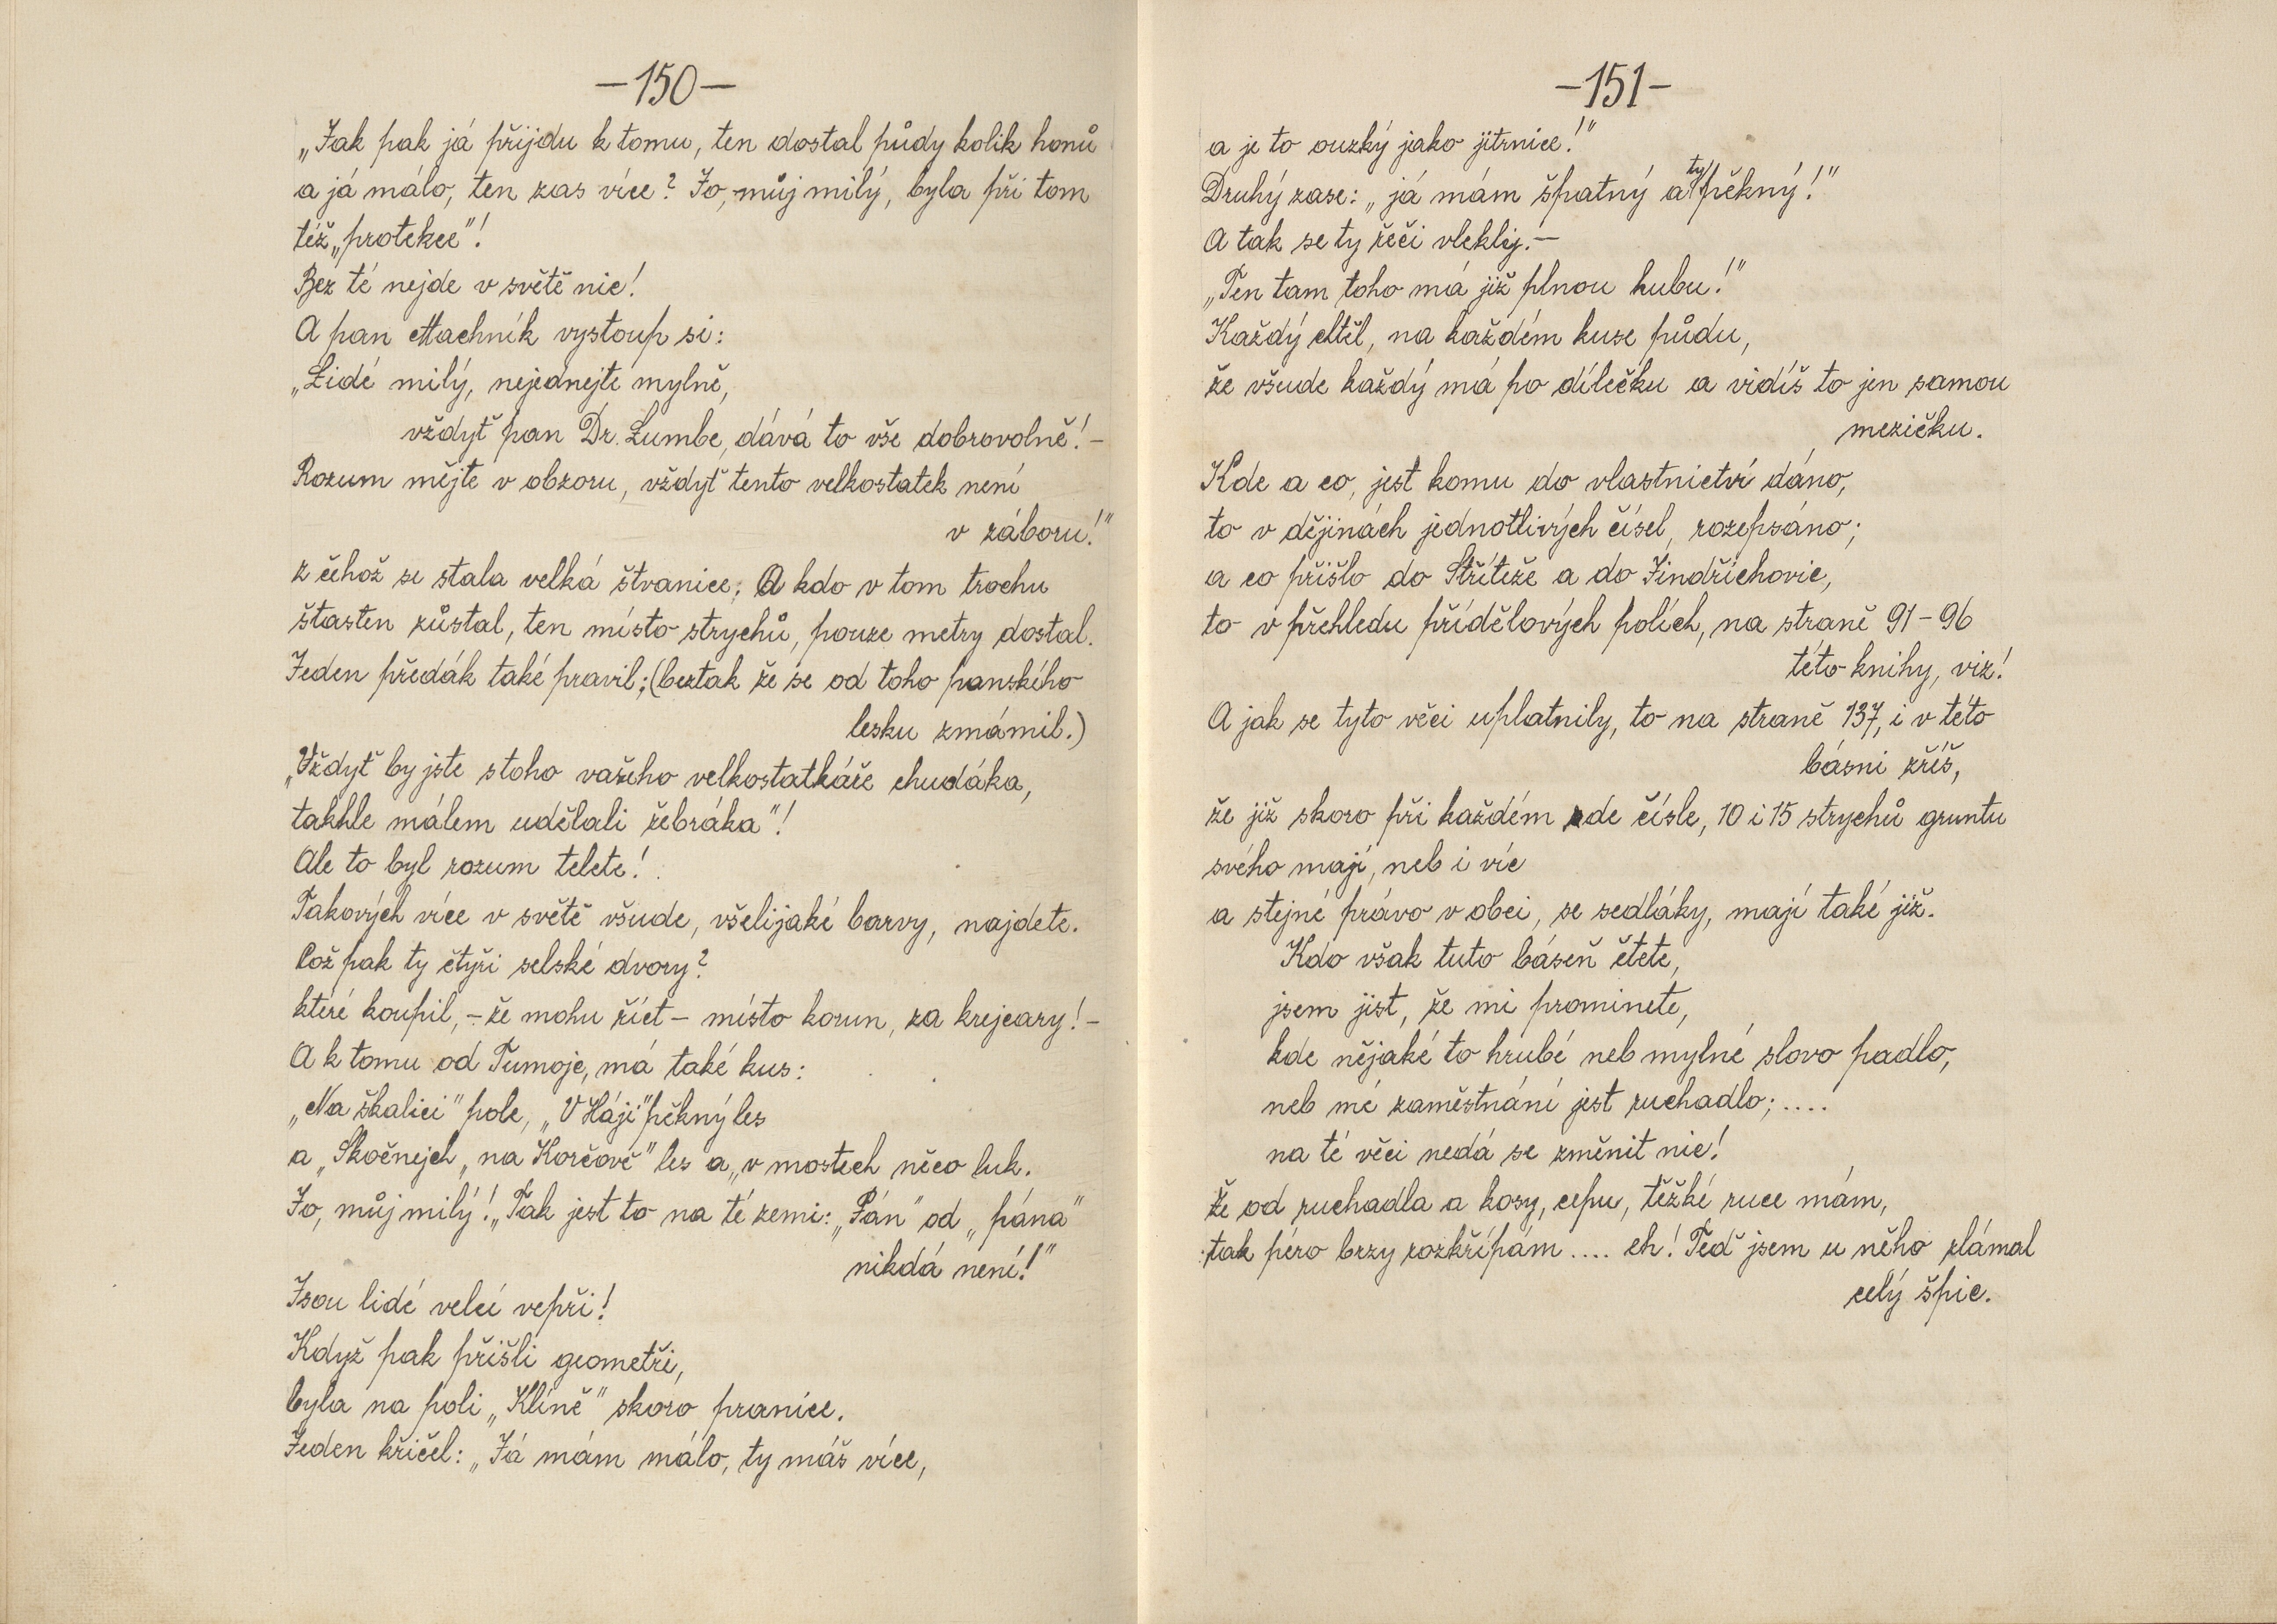 —150—
„Jak pak já přijdu k tomu, ten dostal půdy kolik honů
a já málo, ten zas více? Jo, můj milý, byla při tom
též „protekce"!
Bez té nejde v světě nic!
A pan Machník vystoup si:
„Lidé milý, nejednejte mylně,
vždyť pan Dr. Lumbe, dává to vše dobrovolně! –
Rozum mějte v obzoru, vždyť tento velkostatek není
v záboru!"
z čehož se stala velká štvanice. A kdo v tom trochu
štasten zůstal, ten místo strychů, pouze metry dostal.
Jeden předák také pravil; (beztak že se od toho panského
lesku zmámil.)
„Vždyť by jste stoho vašeho velkostatkáře chudáka,
takhle málem udělali žebráka"!
Ale to byl rozum telete!
Takových více v světě všude, všelijaké barvy, najdete.
Což pak ty čtyři selské dvory?
které koupil, – že mohu říct – místo korun, za krejcary! –
A k tomu od Tumoje, má také kus:
„Na škalici" pole, „V Háji" pěkný les
a „Skočnejch „na Korčově" les a „v mostech něco luk.
Jo, můj milý! „Tak jest to na té zemi: „Pán" od „pána"
nikdá není!"
Jsou lidé velcí vepři!
Když pak přišli geometři,
byla na poli „Klíně" skoro pranice.
Jeden křičel: „Já mám málo, ty máš více,
—151—
a je to ouzký jako jitrnice!"
Druhý zase: „já mám špatný a ty pěkný!"
A tak se ty řeči vlekly. —
„Ten tam toho má již plnou hubu!"
Každý chtěl, na každém kuse půdu,
že všude každý má po dílečku a vidíš to jen samou
mezičku.
Kde a co, jest komu do vlastnictví dáno,
to v dějinách jednotlivých čísel, rozepsáno;
a co přišlo do Stříteže a do Jindřichovic,
to v přehledu přídělových polích, na straně 91 – 96
této knihy, viz!
A jak se tyto věci uplatnily, to na straně 137, i v této
básni zříš,
že již skoro při každém zde čísle, 10 i 15 strychů gruntu
svého mají, neb i víc
a stejné právo v obci, se sedláky, mají také již.
Kdo však tuto báseň čtete,
jsem jist, že mi prominete,
kde nějaké to hrubé neb mylné slovo padlo,
neb mé zaměstnání jest ruchadlo; ....
na té věci nedá se změnit nic!
Že od ruchadla a kosy, cepu, těžké ruce mám,
tak péro brzy rozkřípám .... eh! Teď jsem u něho zlámal
celý špic.